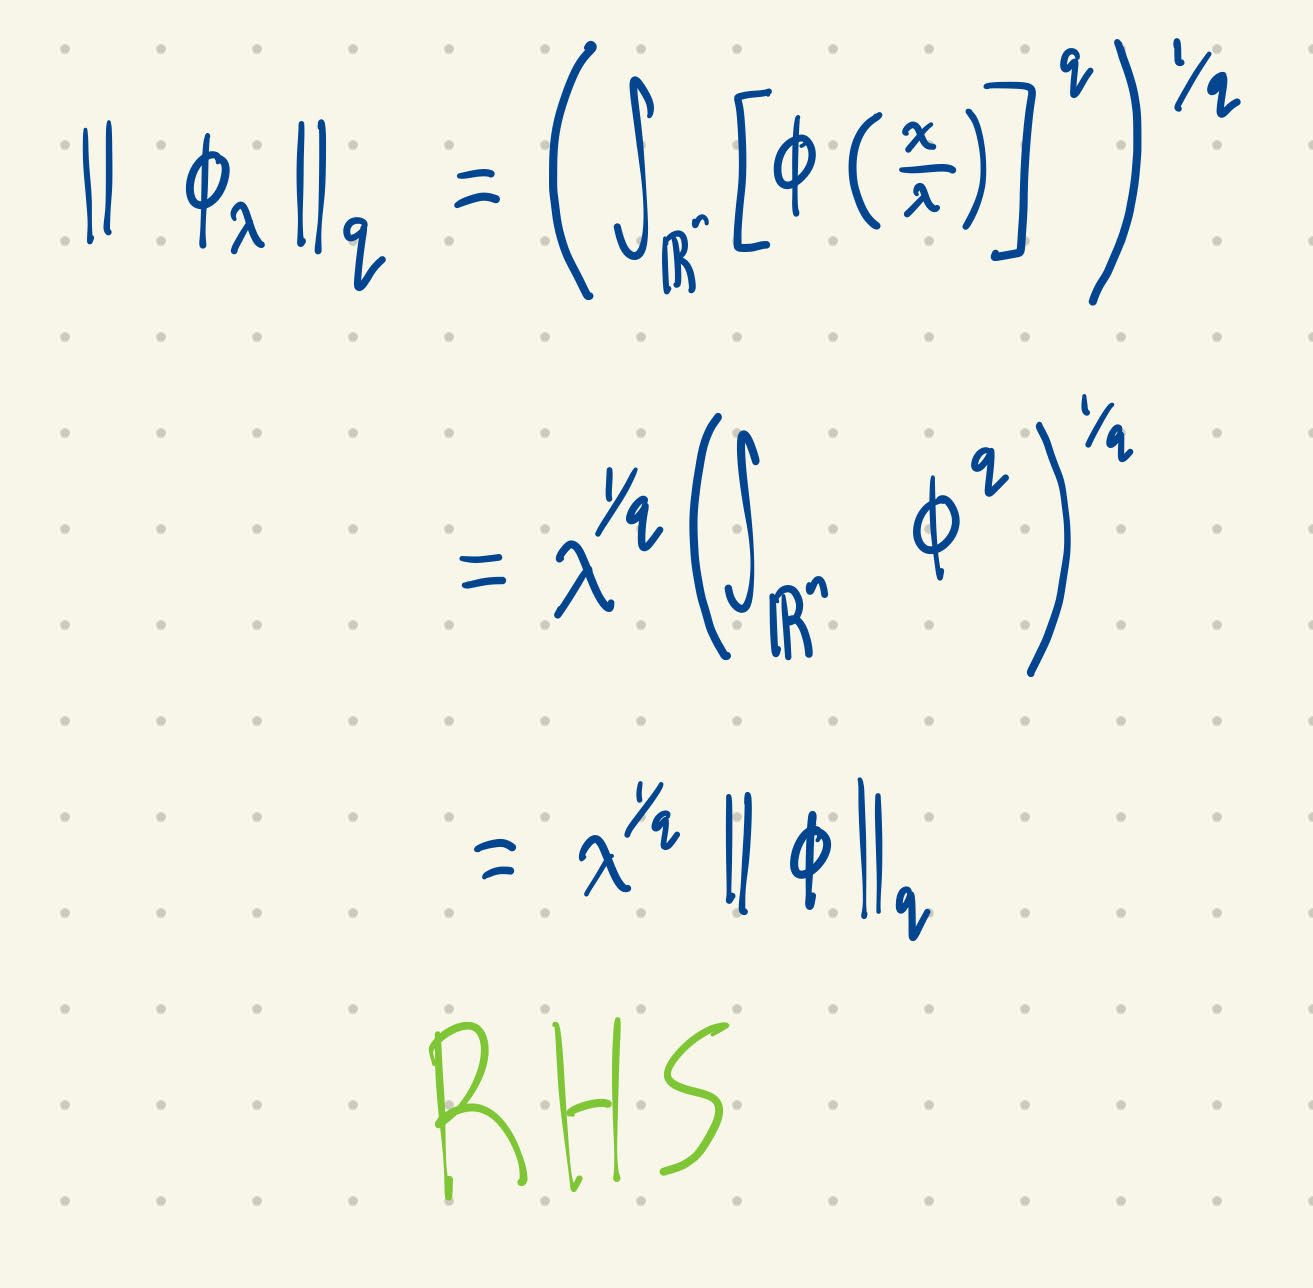 ‖ ϕ_λ ‖_q = ( ∫_{ℝⁿ} [ ϕ ( x/λ ) ]^q )^{1/q}
= λ^{1/q} ( ∫_{ℝⁿ} ϕ^q )^{1/q}
= λ^{1/q} ‖ ϕ ‖_q
RHS